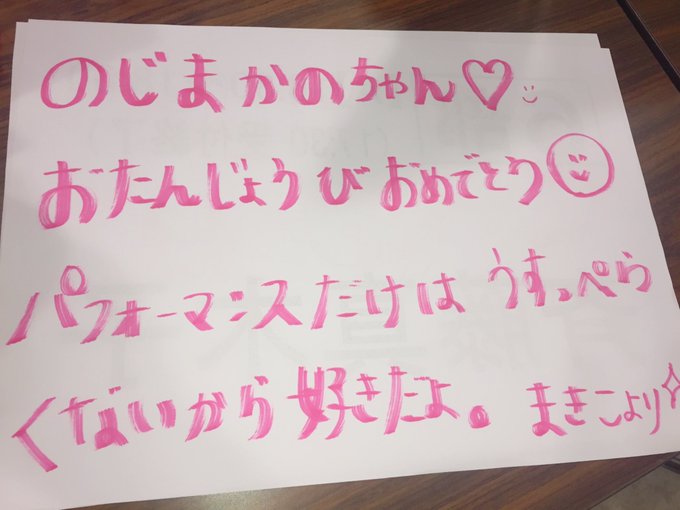 のじまかのちゃん♡
おたんじょうびおめでとう
パフォーマンスだけは うすっぺら
くないから好きだよ。 まきこより